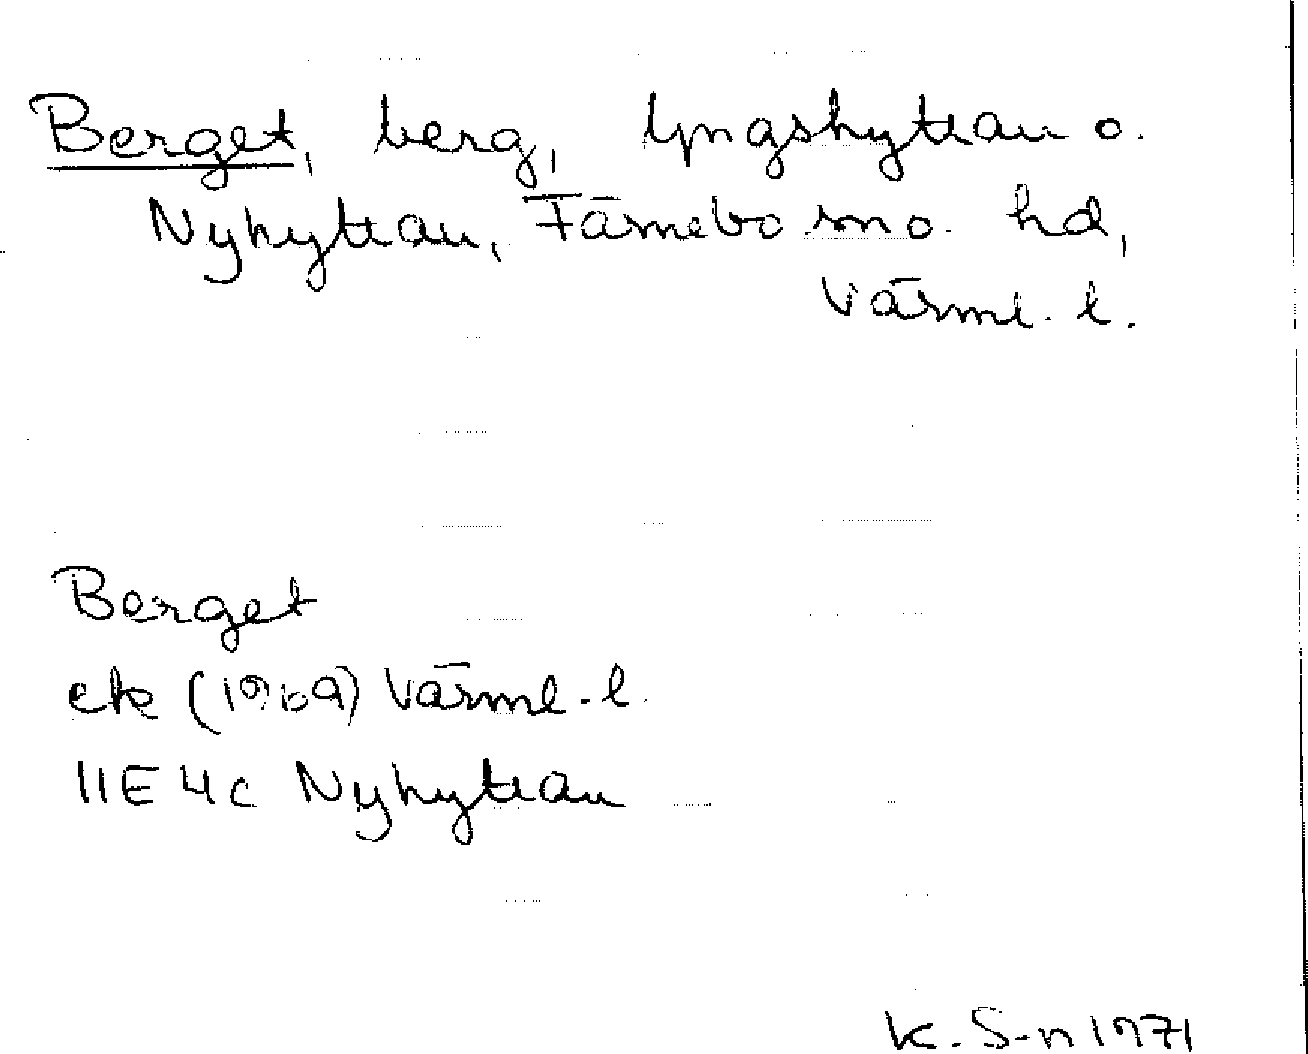 Berget, berg, Lyngshyttan o.
Nyhyttan, Färnebo sn o. hd,
Värml. l.
Berget
ek (1969) Värml. l.
11E 4c Nyhyttan
K. S-n 1971